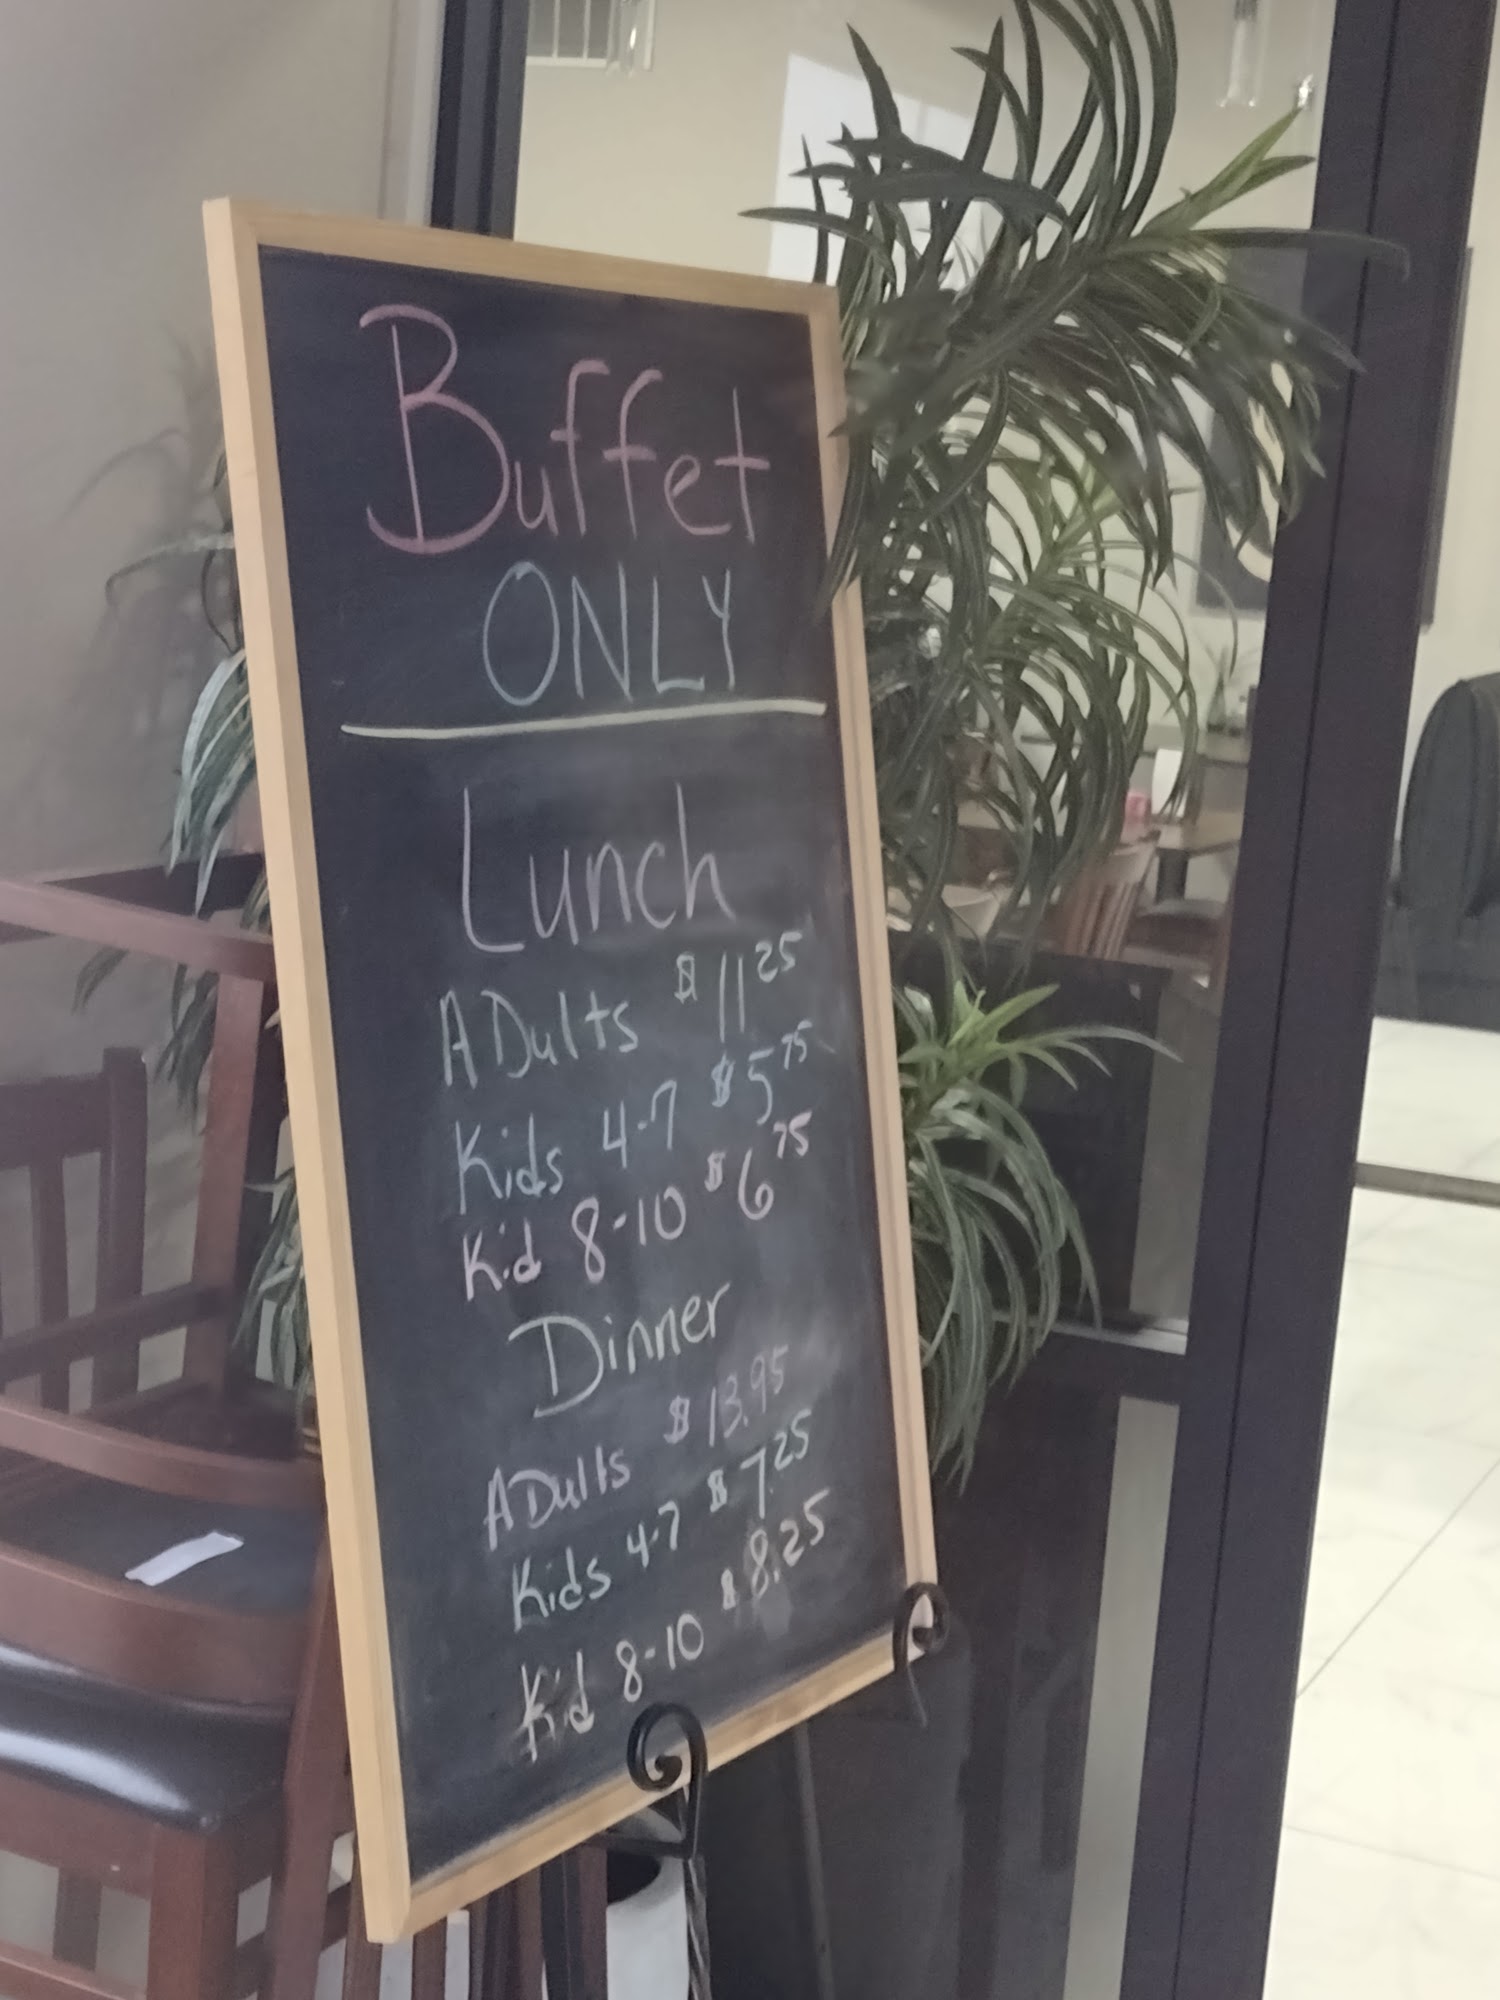 Buffet
ONLY
Lunch
ADults $11 25
Kids 4-7 $5 75
Kid 8-10 $6 75
Dinner
ADults $13.95
Kids 4-7 $7.25
Kid 8-10 $8.25